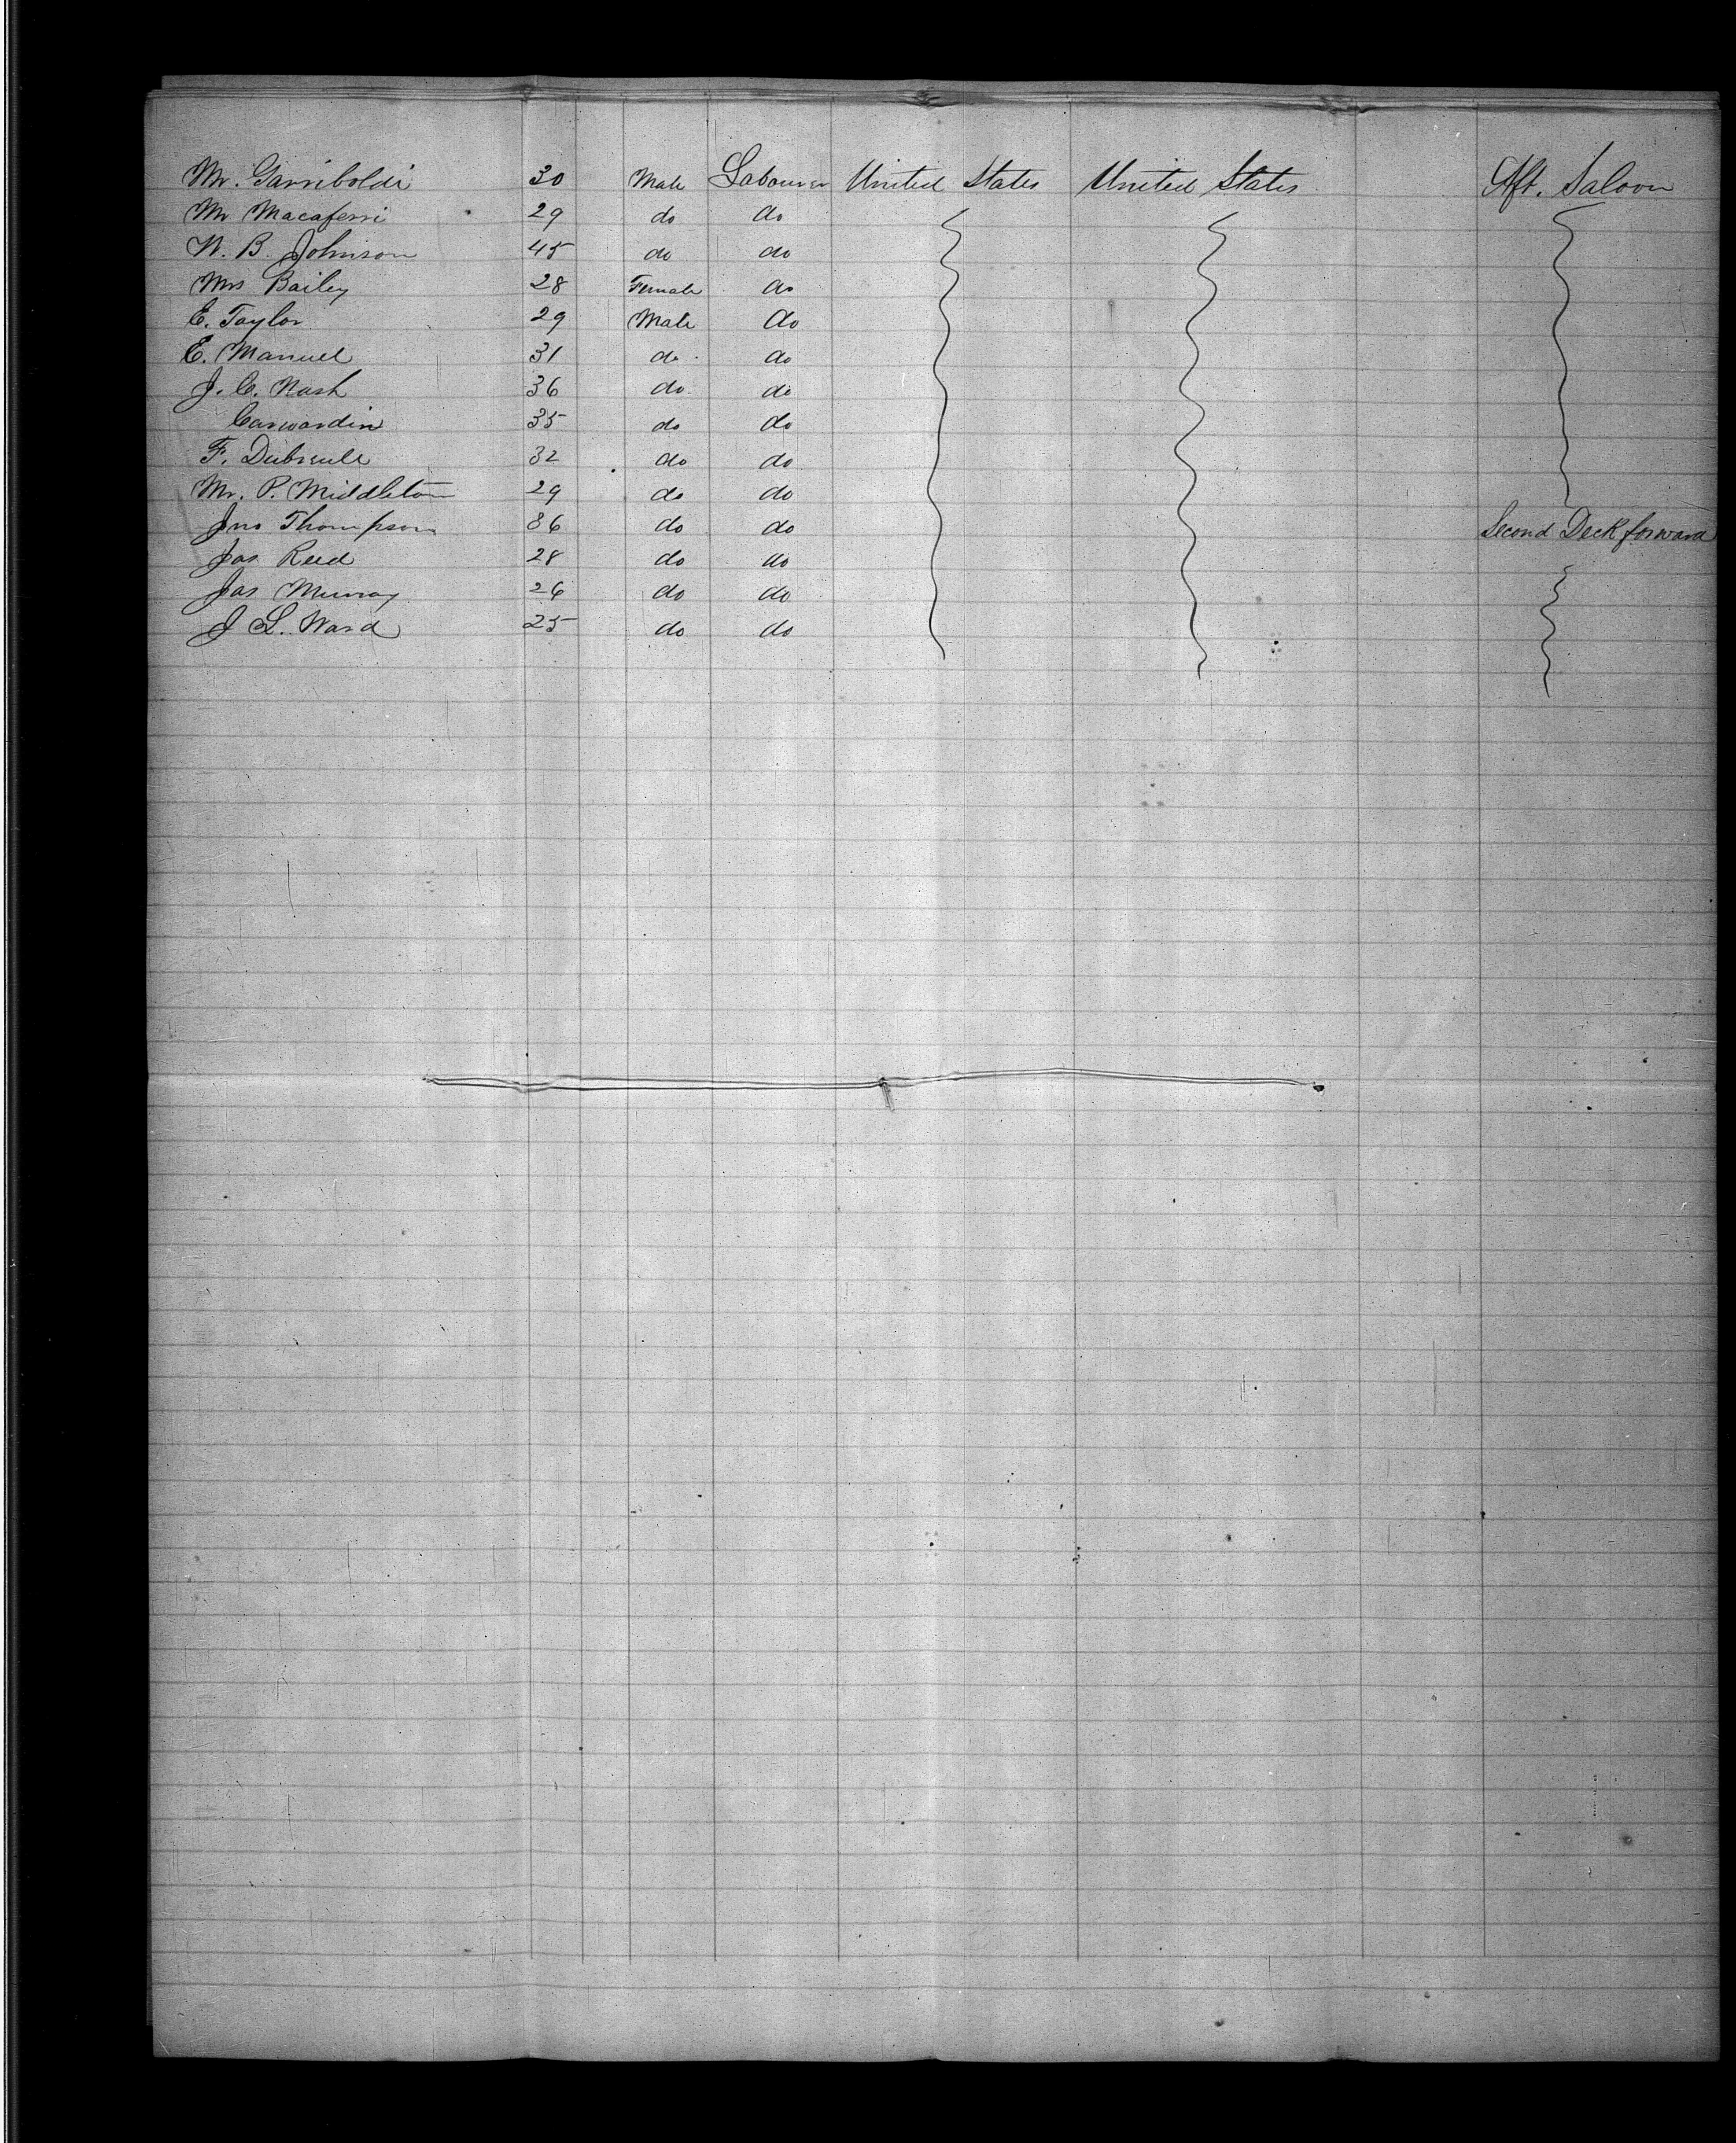 Mr. Garriboldi 30 Male Labourer United States United States Aft. Saloon
Mr Macaferri 29 do do
W. B. Johnson 45 do do
Mrs Bailey 28 Female do
E. Taylor 29 Male do
E. Manuel 31 do do
J. C. Nash 36 do do
Carwardin 35 do do
F. Dubreule 32 do do
Mr. P. Middleton 29 do do
Jno Thompson 36 do do Second Deck forward
Jas Reed 28 do do
Jas Murray 26 do do
J L. Ward 25 do do